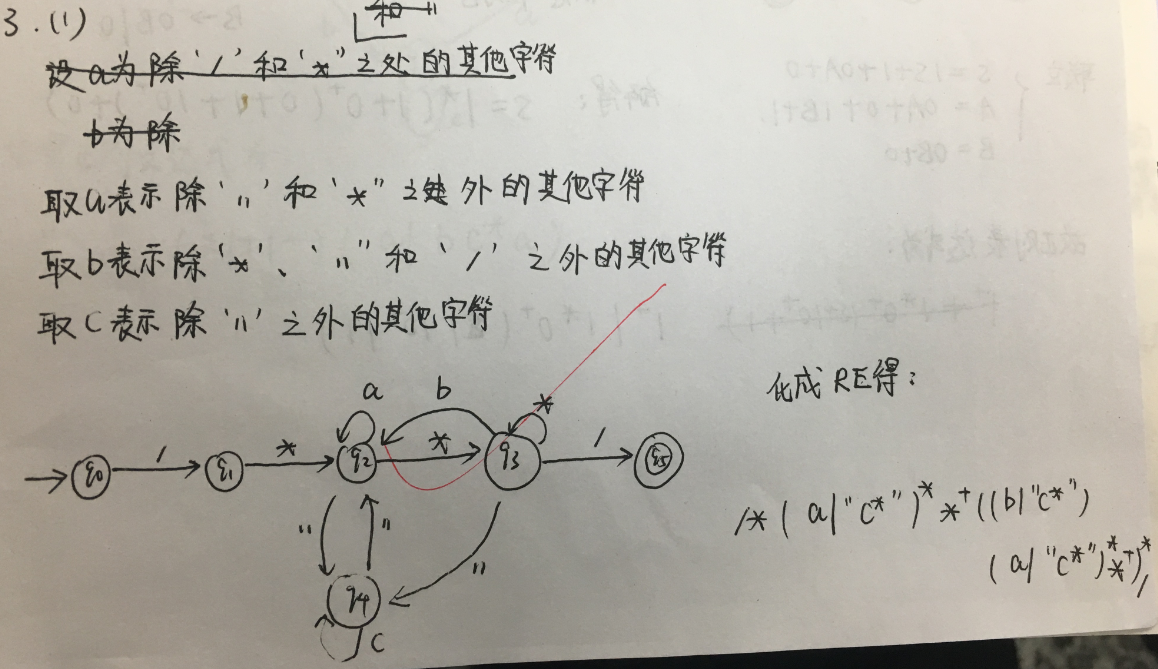 3.(1)
和 "
设a为除'/'和'*"之处的其他字符
b为除
取a表示除'"'和'*"之外的其他字符
取b表示除'*'、'""和'/'之外的其他字符
取C表示除'"'之外的其他字符
化成RE得:
a b *
q0 / q1 * q2 * q3 / q5
" " "
q4
C
/*(a|"c*")* *⁺((b|"c*")
(a|"c*")* *⁺)* /